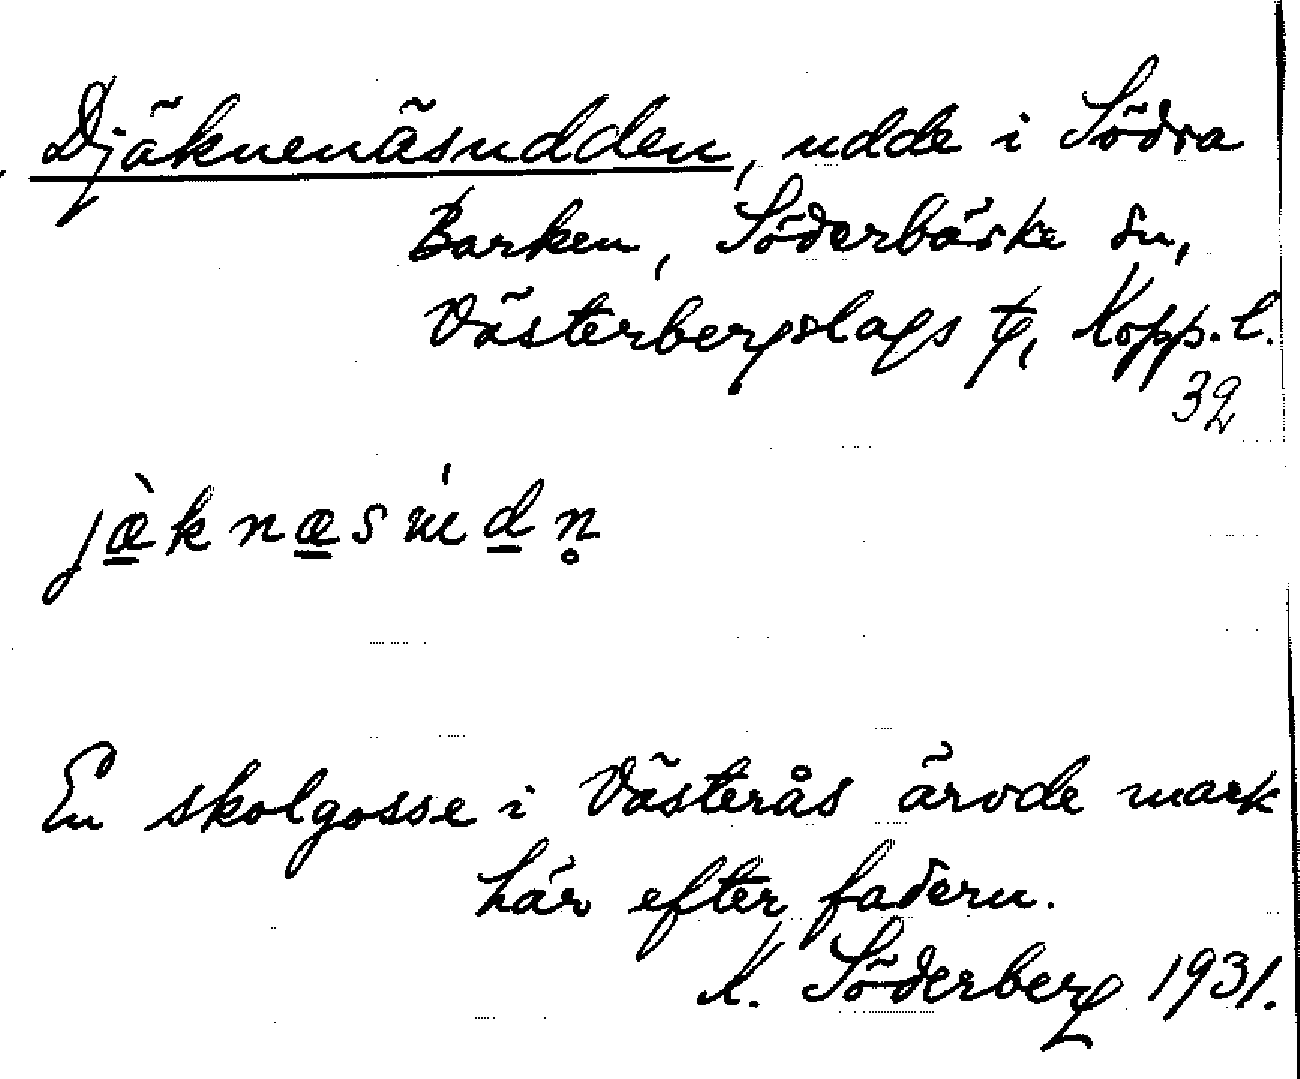 Djäknenäsudden, udde i Södra
Barken, Söderbärke sn,
Västerbergslags tg, Kopp. l.
32
jæ̀knæsúdn̥
En skolgosse i Västerås ärvde mark
här efter fadern.
K. Söderberg 1931.